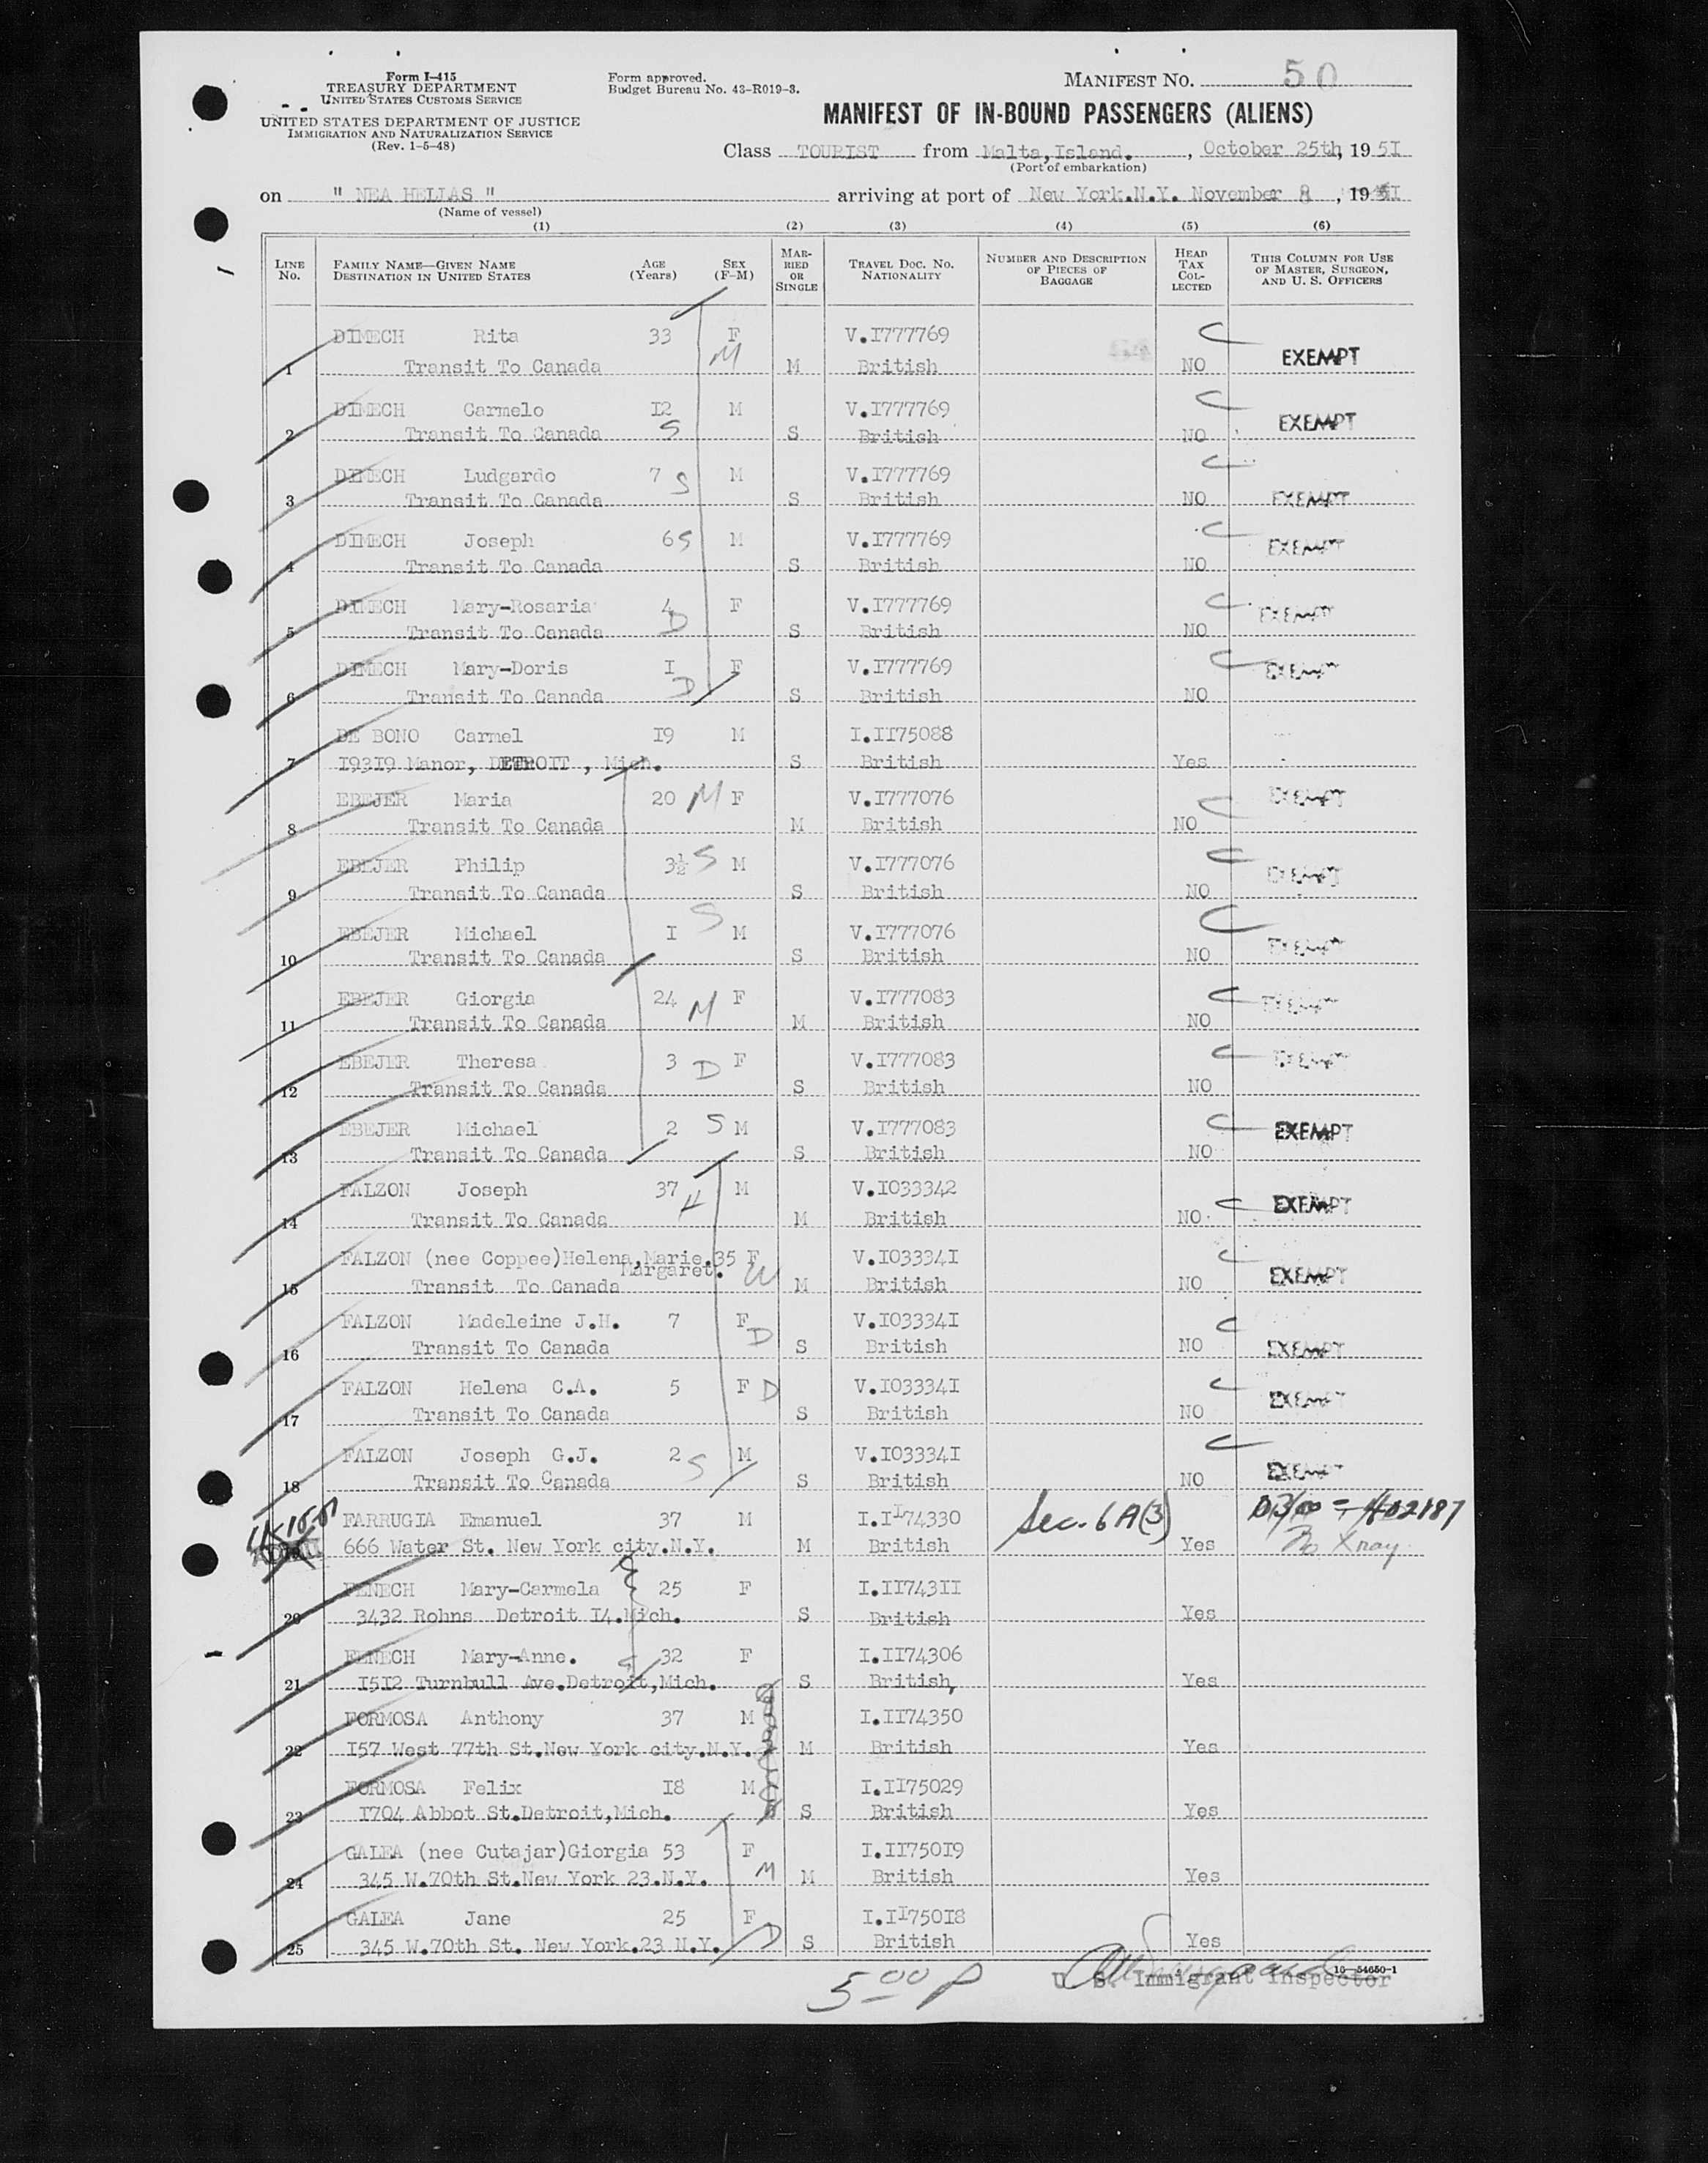 Form I-415
TREASURY DEPARTMENT
UNITED STATES CUSTOMS SERVICE
UNITED STATES DEPARTMENT OF JUSTICE
IMMIGRATION AND NATURALIZATION SERVICE
(Rev. 1-5-48)
Form approved.
Budget Bureau No. 43-R019-3.
MANIFEST NO. 50
MANIFEST OF IN-BOUND PASSENGERS (ALIENS)
Class TOURIST from Malta,Island. , October 25th, 1951
(Port of embarkation)
on " NEA HELLAS " arriving at port of New York.N.Y. November 8 , 1951
(Name of vessel)
(1) (2) (3) (4) (5) (6)
LINE NO. FAMILY NAME—GIVEN NAME DESTINATION IN UNITED STATES AGE (Years) SEX (F-M) MARRIED OR SINGLE TRAVEL DOC. NO. NATIONALITY NUMBER AND DESCRIPTION OF PIECES OF BAGGAGE HEAD TAX COLLECTED THIS COLUMN FOR USE OF MASTER, SURGEON, AND U. S. OFFICERS
DIMECH Rita 33 F V.I777769 C
1 Transit To Canada M M British NO EXEMPT
DIMECH Carmelo I2 M V.I777769 C EXEMPT
2 Transit To Canada S S British NO
DIMECH Ludgardo 7 S M V.I777769 C
3 Transit To Canada S British NO EXEMPT
DIMECH Joseph 6 S M V.I777769 C EXEMPT
4 Transit To Canada S British NO
DIMECH Mary-Rosaria 4 F V.I777769 C EXEMPT
5 Transit To Canada D S British NO
DIMECH Mary-Doris I F V.I777769 C EXEMPT
6 Transit To Canada D S British NO
DE BONO Carmel I9 M I.II75088
7 I93I9 Manor, DETROIT , Mich. S British Yes
EBEJER Maria 20 M F V.I777076 C EXEMPT
8 Transit To Canada M British NO
EBEJER Philip 3½ S M V.I777076 C EXEMPT
9 Transit To Canada S British NO
EBEJER Michael I S M V.I777076 C EXEMPT
10 Transit To Canada S British NO
EBEJER Giorgia 24 M F V.I777083 C EXEMPT
11 Transit To Canada M British NO
EBEJER Theresa 3 D F V.I777083 C EXEMPT
12 Transit To Canada S British NO
EBEJER Michael 2 S M V.I777083 C EXEMPT
13 Transit To Canada S British NO
FALZON Joseph 37 H M V.I033342 C EXEMPT
14 Transit To Canada M British NO
FALZON (nee Coppee)Helena,Marie.35 F V.I03334I C
Margaret. W
15 Transit To Canada M British NO EXEMPT
FALZON Madeleine J.H. 7 F D V.I03334I C
16 Transit To Canada S British NO EXEMPT
FALZON Helena C.A. 5 F D V.I03334I C EXEMPT
17 Transit To Canada S British NO
FALZON Joseph G.J. 2 S M V.I03334I C EXEMPT
18 Transit To Canada S British NO
FARRUGIA Emanuel 37 M I.II74330 Sec. 6A(3)
666 Water St. New York city.N.Y. M British Yes Xray
FENECH Mary-Carmela 25 F I.II743II
20 3432 Rohns Detroit I4.Mich. S British Yes
FENECH Mary-Anne. 32 F I.II74306
21 I5I2 Turnbull Ave.Detroit,Mich. S British, Yes
FORMOSA Anthony 37 M I.II74350
22 I57 West 77th St.New York city.N.Y. M British Yes
FORMOSA Felix I8 M I.II75029
23 I704 Abbot St.Detroit,Mich. S British Yes
GALEA (nee Cutajar)Giorgia 53 F I.II750I9
24 345 W.70th St.New York 23.N.Y. M M British Yes
GALEA Jane 25 F I.II750I8
25 345 W.70th St. New York.23 N.Y. D S British Yes
16—54650-1
5.00 P U. S. Immigrant Inspector